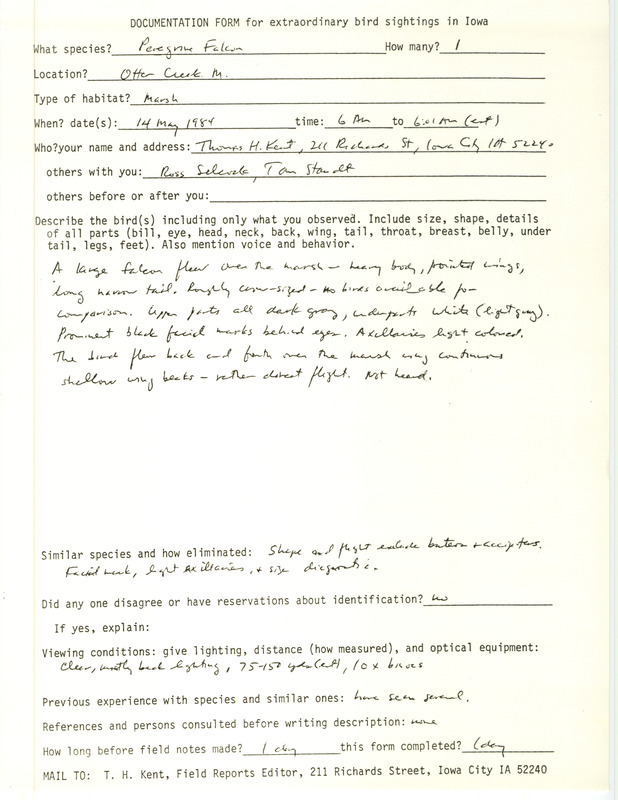 DOCUMENTATION FORM for extraordinary bird sightings in Iowa
What species? Peregrine Falcon How many? 1
Location? Otter Creek M.
Type of habitat? Marsh
When? date(s): 14 May 1984 time: 6 AM to 6:01 AM (est)
Who? your name and address: Thomas H. Kent, 211 Richards St, Iowa City IA 52240
others with you: Ross Silcock, Tom Staudt
others before or after you:
Describe the bird(s) including only what you observed. Include size, shape, details
of all parts (bill, eye, head, neck, back, wing, tail, throat, breast, belly, under
tail, legs, feet). Also mention voice and behavior.
A large falcon flew over the marsh - heavy body, pointed wings,
long narrow tail. Roughly crow-sized - no birds available for
comparison. Upper parts all dark gray, underparts white (light gray).
Prominent black facial marks behind eyes. Axillaries light colored.
The bird flew back and forth over the marsh using continuous
shallow wing beats - rather direct flight. Not heard.
Similar species and how eliminated: Shape and flight exclude buteos + accipiters.
Facial mark, light axillaries, + size diagnostic.
Did any one disagree or have reservations about identification? no
If yes, explain:
Viewing conditions: give lighting, distance (how measured), and optical equipment:
Clear, mostly back lighting, 75-150 yds (est), 10 x binocs
Previous experience with species and similar ones: have seen several.
References and persons consulted before writing description: none
How long before field notes made? 1 day this form completed? 1 day
MAIL TO: T. H. Kent, Field Reports Editor, 211 Richards Street, Iowa City IA 52240